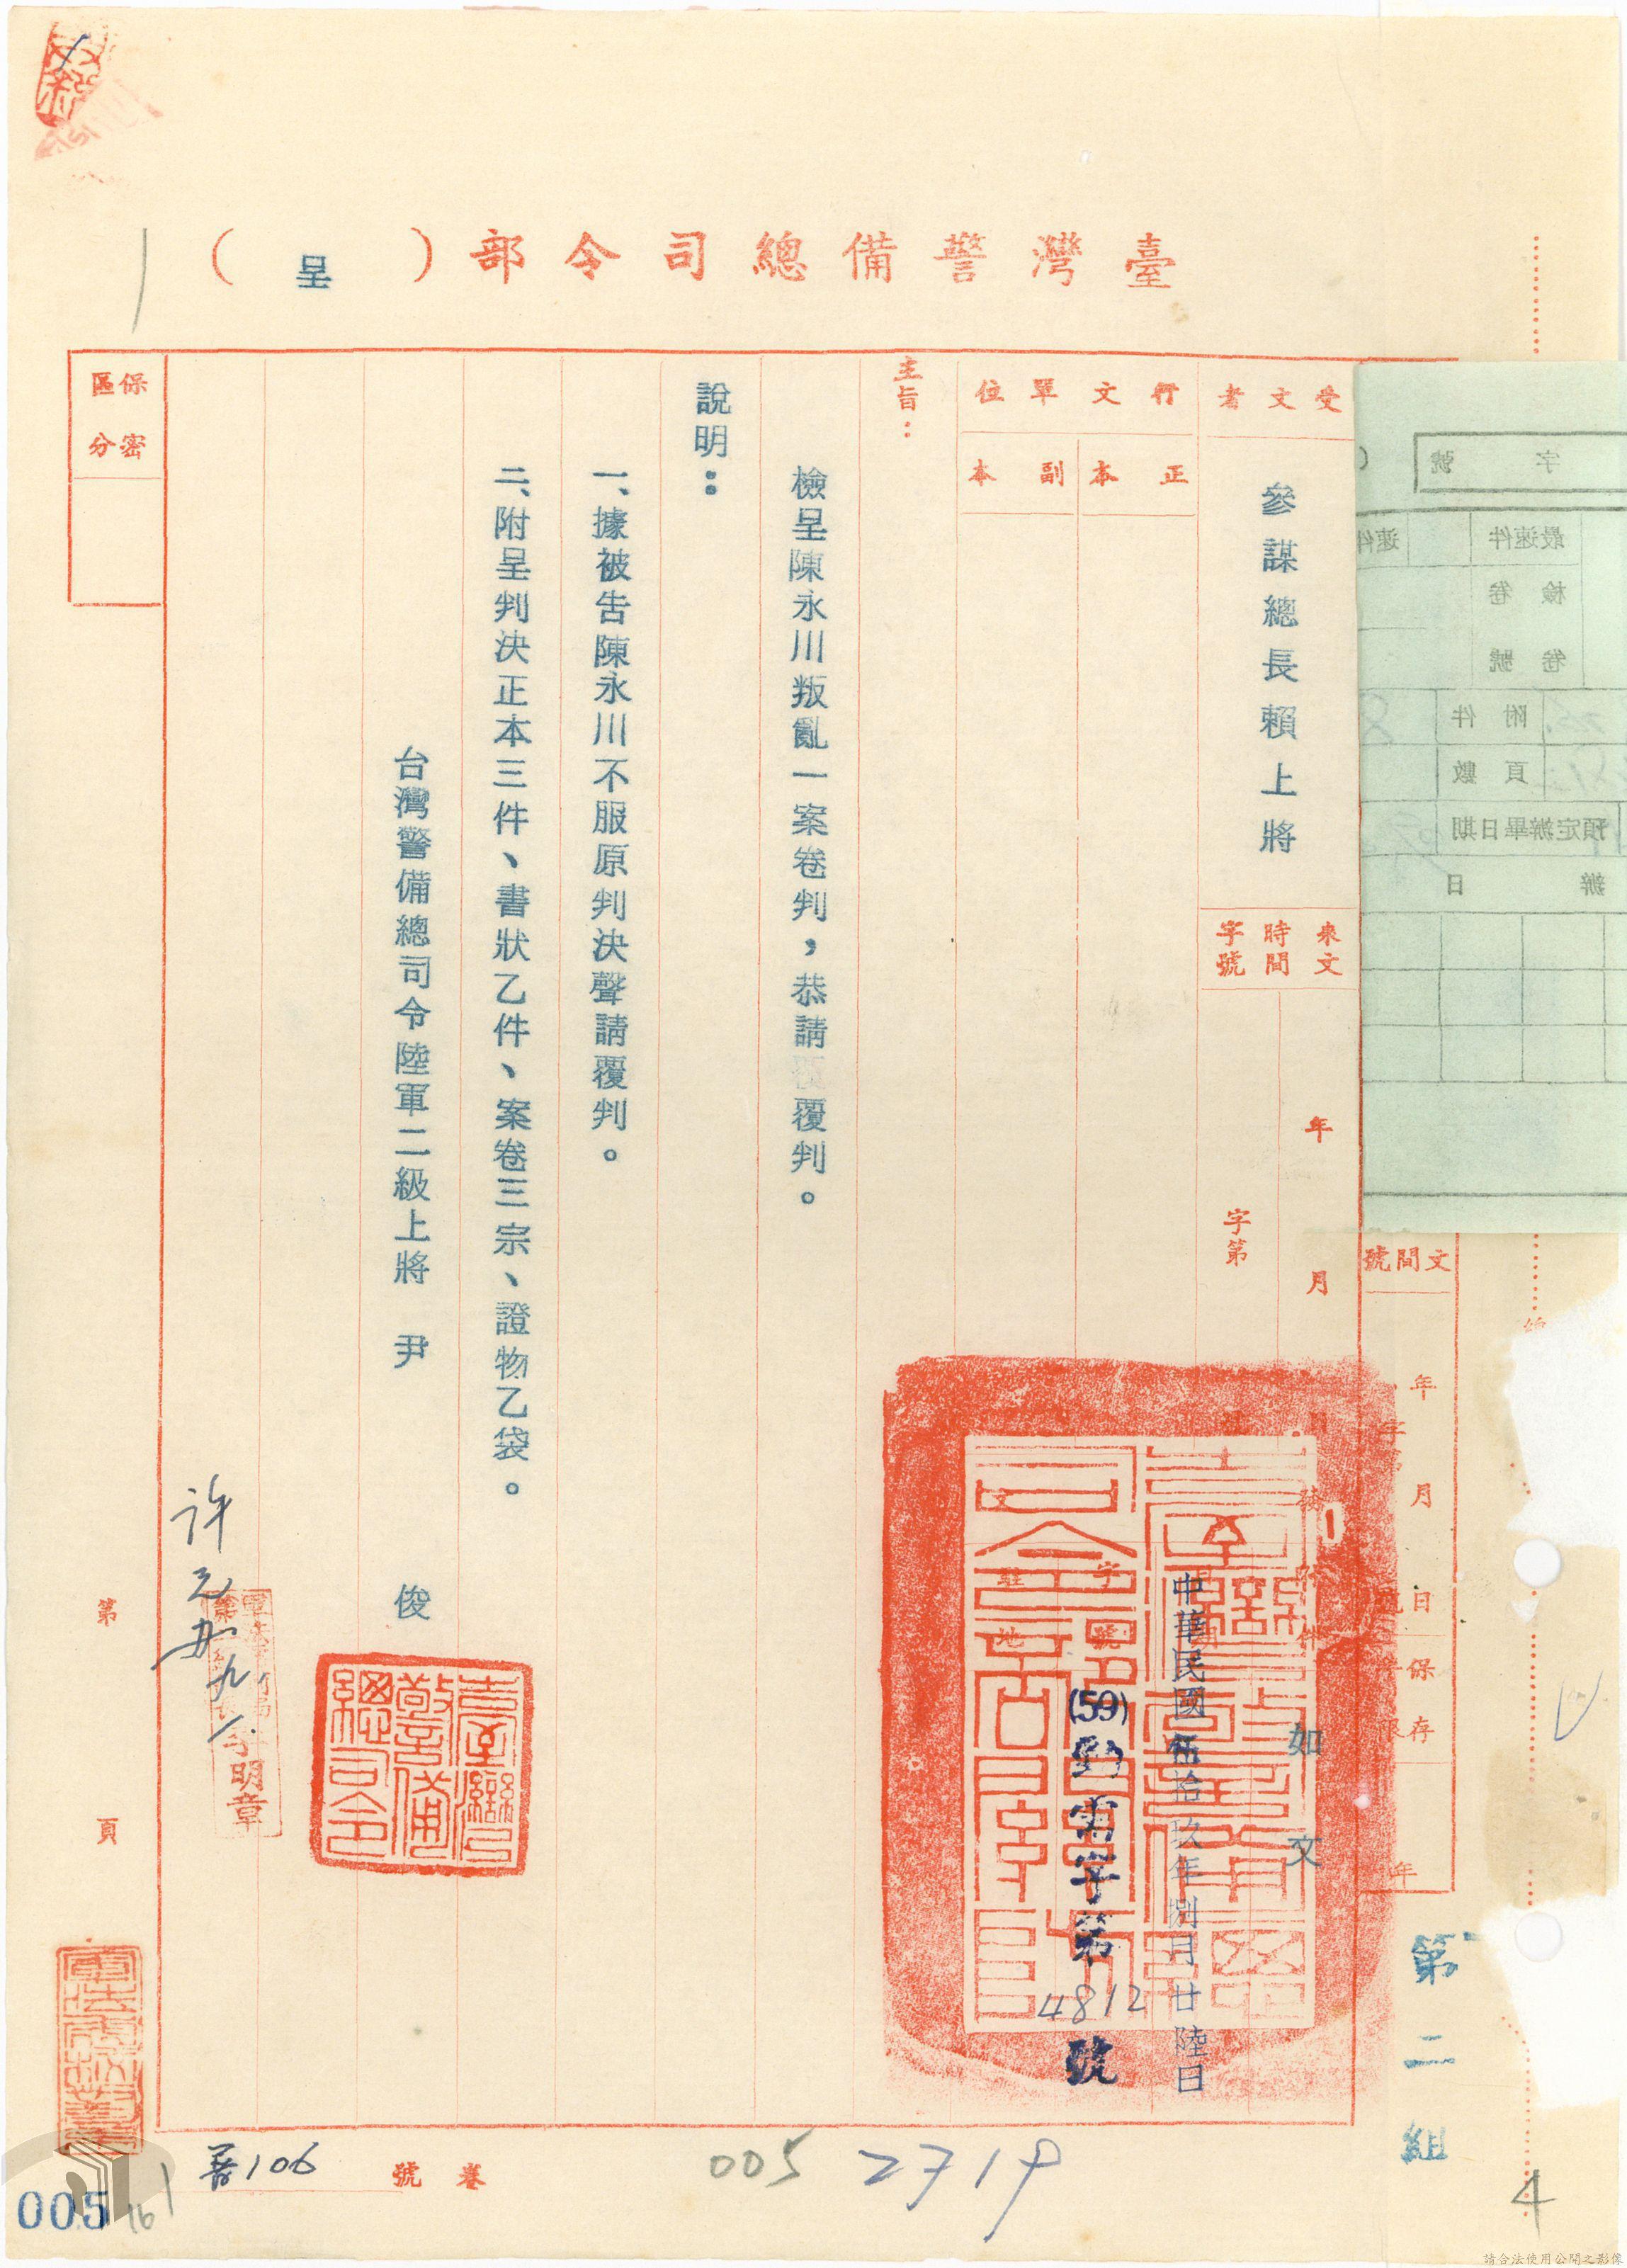 臺灣警備總司令部（呈）
受文者
參謀總長賴上將
來文
時間
字號
年
月
字第
行文單位
正本
副本
附件
如文
中華民國伍拾玖年捌月廿陸日
(59)勁需字第4812號
駐地
主旨：
檢呈陳永川叛亂一案卷判，恭請覆判。
說明：
一、據被告陳永川不服原判決聲請覆判。
二、附呈判決正本三件、書狀乙件、案卷三宗、證物乙袋。
台灣警備總司令陸軍二級上將 尹 俊
臺灣警備總司令
李明章
保密區分
第
頁
卷號
普106
005 2719
005
161
字號
最速件
速件
檢卷
卷號
附件
頁數
預定辦畢日期
辦
日
文間號
年
月
日
保存
年
第二組
4
請合法使用公開之影像